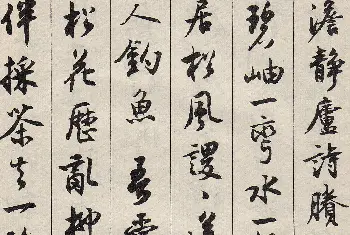 澹静廬詩賸
碧岫一彎水一
居松風謖〻
人釣魚 吾
松花歷亂柳
伴採茶去一